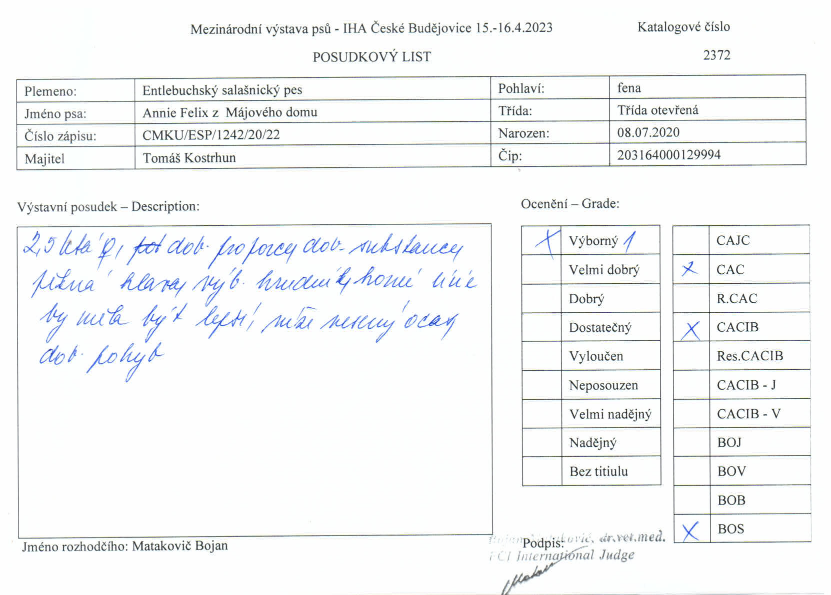 Mezinárodní výstava psů - IHA České Budějovice 15.-16.4.2023
Katalogové číslo
POSUDKOVÝ LIST
2372
Plemeno: Entlebuchský salašnický pes Pohlaví: fena
Jméno psa: Annie Felix z Májového domu Třída: Třída otevřená
Číslo zápisu: CMKU/ESP/1242/20/22 Narozen: 08.07.2020
Majitel Tomáš Kostrhun Čip: 203164000129994
Výstavní posudek – Description:
2,5 letá ♀, dob. proporcy dob. substancy
pěkná hlava, výb. hrudník, horní linie
by měla být lepší, níže nesený ocas,
dob. pohyb
Jméno rozhodčího: Matakovič Bojan
Ocenění – Grade:
X Výborný 1
Velmi dobrý
Dobrý
Dostatečný
Vyloučen
Neposouzen
Velmi nadějný
Nadějný
Bez titiulu
CAJC
X CAC
R.CAC
X CACIB
Res.CACIB
CACIB - J
CACIB - V
BOJ
BOV
BOB
X BOS
Podpis:
dr.vet.med.
FCI International Judge